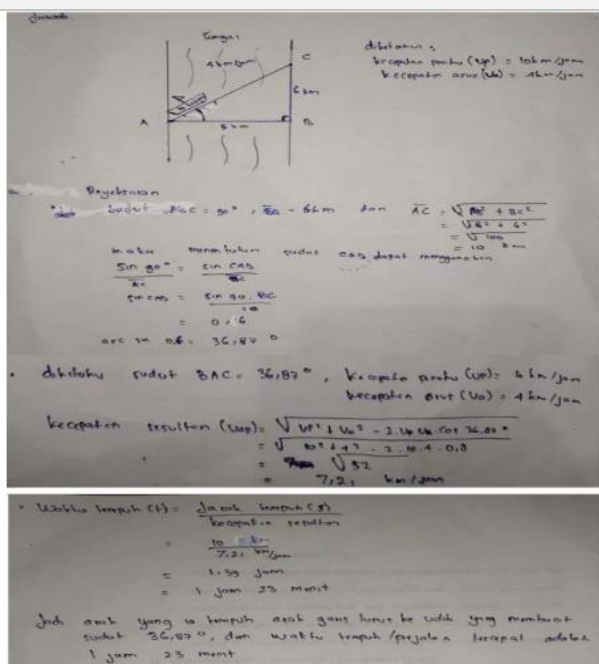 Jawab
Sungai
4 km/jam
C
6 km
A
B
8 km
diketahui :
kecepatan perahu (Vp) = 10 km/jam
kecepatan arus (Va) = 4 km/jam
Penyelesaian
sudut ABC = 90°, BC = 6km dan AC = √AB² + BC²
= √8² + 6²
= √100
= 10 km
maka menentukan sudut CAB dapat menggunakan
sin 90° = sin CAB
AC BC
sin CAB = sin 90. BC
10
= 0,6
arc sin 0,6 = 36,87°
• diketahui sudut BAC = 36,87°, kecepatan perahu (Vp) = km/jam
kecepatan arus (Va) = 4 km/jam
kecepatan resultan = √Vp² + Va² - 2.Vp.Va.cos 36,87°
= √10² + 4² - 2.10.4.0,8
= √52
= 7,21 km/jam
• Waktu tempuh (t) = Jarak tempuh (s)
kecepatan resultan
= 10 km
7,21 km/jam
= 1.39 jam
= 1 jam 23 menit
Jadi arah yang di tempuh arah garis lurus ke yang membuat
sudut 36,87°, dan waktu tempuh / tercepat adalah
1 jam 23 menit